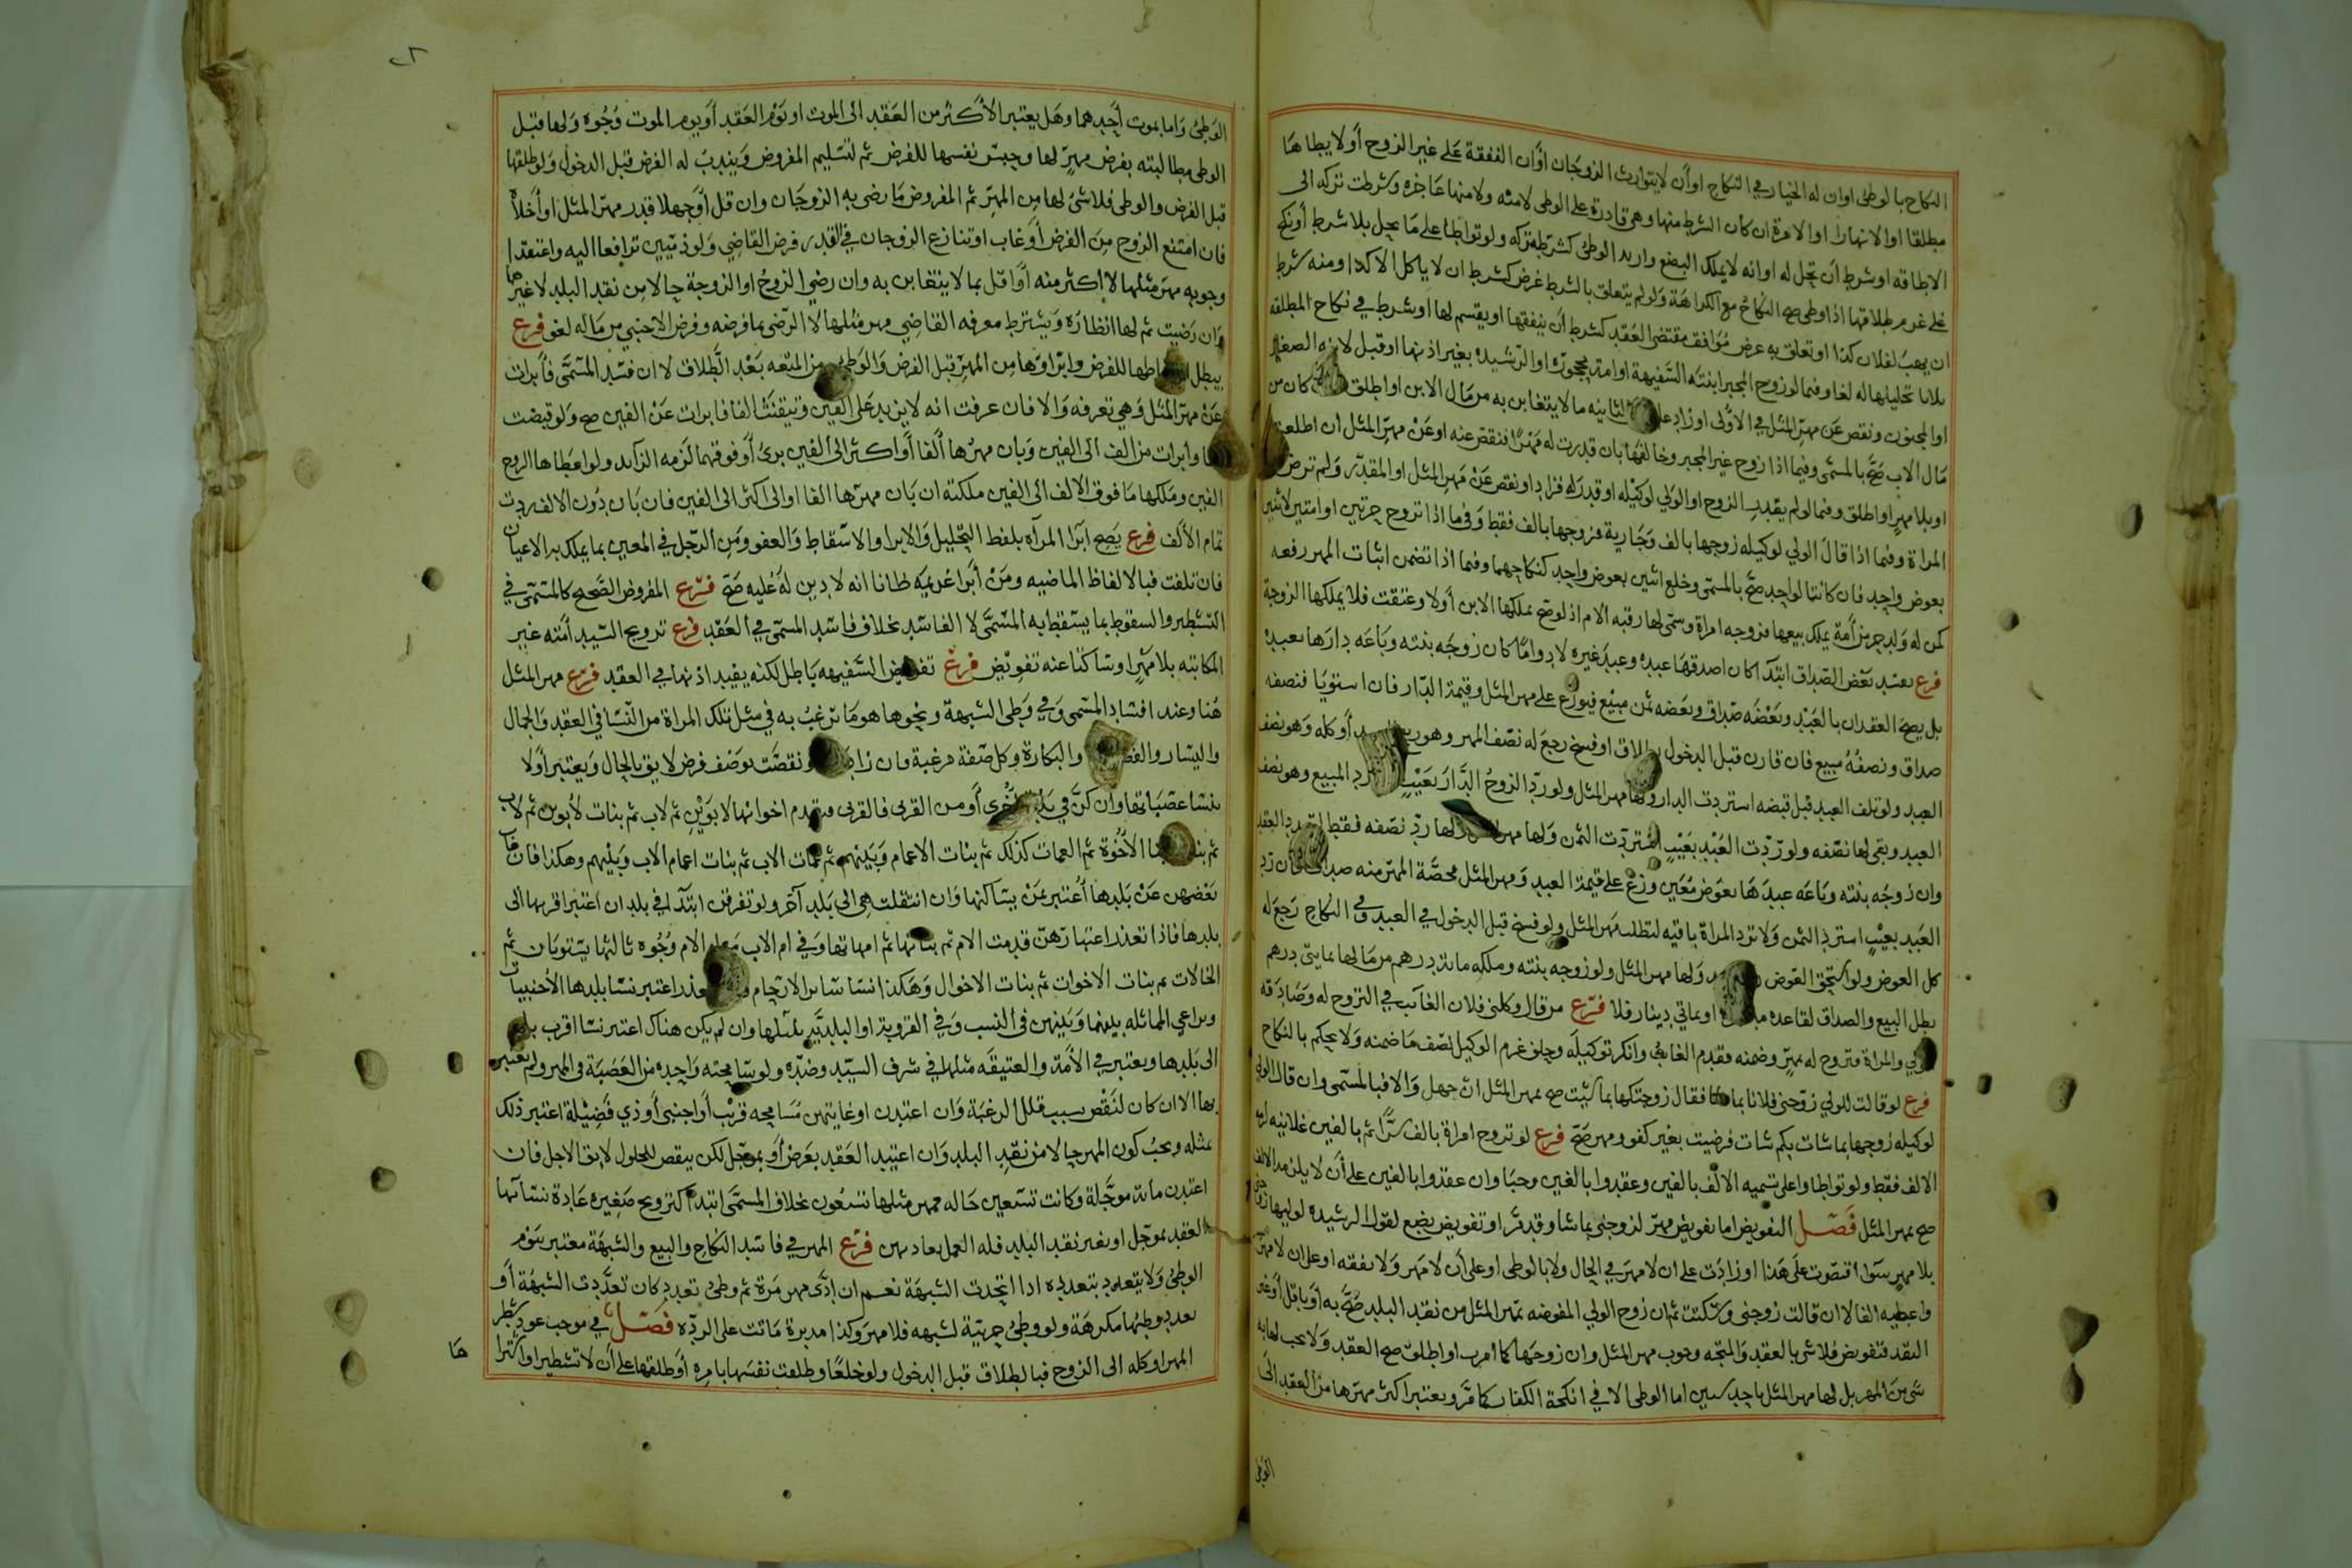 النكاح بالوطئ او ان له الخيار في النكاح او أن لا يتوارث الزوجان او أن النفقة على غير الزوج أو لا يطاها
مطلقا او الا نهارا او الا مرة ان كان الشرط منها وهي قادرة على الوطى لا منه ولا منها عاجزه وشرطت تركه الى
الاطاقه او شرط أن تحل له او انه لا يملك البضع واريد الوطئ كشرطه تركه ولو تواطا على ما يحل بلا شرط أو نكح
على عزم طلاقها اذا وطى صح النكاح مع الكراهة ولو لم يتعلق بالشرط غرض كشرط ان لا ياكل الا كذا ومنه شرط
ان يهب لفلان كذا او تعلق به غرض موافق مقتضى العقد كشرط أن ينفقها او يقسم لها او شرط في نكاح المطلقه
ثلاثا تحليلها له لغا وفيما لو زوج المجبر ابنته السفيهة او امة محجوره او الرشيده بغير اذنها او قبل لابنه الصغير
او المجنون ونقص عن مهر المثل في الأولى او زاد في الثانيه ما لا يتغابن به من مال الابن او اطلق كان من
مال الاب صح بالمسمى وفيما اذا زوج غير المجبر وخالفها بان قدرت له مهرا فنقص عنه او عن مهر المثل ان اطلقت
او بلا مهر او اطلق وفيما لو لم يقدر الزوج او الولي لوكيله او قدر له فزاد او نقص عن مهر المثل او المقدر ولم ترض
المراة وفيما اذا قال الولي لوكيله زوجها بالف وجارية فزوجها بالف فقط وفي ما اذا تزوج حرتين او امتين لاثنين
بعوض واحد فان كانتا لواحد صح بالمسمى وخلع اثنين بعوض واحد كنكاحهما وفيما اذا تضمن اثبات المهر رفعه
كمن له ولد حر من أمة يملك بيعها فزوجه امراة وسمى لها رقبه الام اذ لو صح ملكها الابن أولا وعتقت فلا يملكها الزوجة
فرع يفسد بعض الصداق ابتدا كان اصدقها عبده وعبد غيره لا دواما كان زوجه بنته وباعه دارها بعبده
بل يصح العقدان بالعبد وبعضه صداق وبعضه ثمن مبيع فيوزع على مهر المثل وقيمة الدار فان استويا فنصفه
صداق ونصفه مبيع فان فارق قبل الدخول بطلاق او فسخ رجع له نصف المهر وهو ربع أو كله وهو نصف
العبد ولو تلف العبد قبل قبضه استردت الدار ولها مهر المثل ولو رد الزوج الدار بعيب المبيع وهو نصف
العبد وبقى لها نصفه ولو ردت العبد بعيب استردت الثمن ولها مهر لها رد نصفه فقط
وان زوجه بنته وباعه عبدها بعوض معين وزع على قيمة العبد ومهر المثل فحصة المهر منه صداق فان رد
العبد بعيب استرد الثمن ولا ترد المراة باقيه لتطلب مهر المثل ولو فسخ قبل الدخول في العبد وفي النكاح رجع له
كل العوض ولو استحق العوض ولها مهر المثل ولو زوجه بنته وملكه مائة درهم من مالها بمايتى درهم
بطل البيع والصداق لقاعدة او بمائتي دينار فلا فرع من قال وكلني فلان الغائب في التزوج له وصادقه
الولي والمراة فتزوج له بمهر وضمنه فقدم الغائب وانكر توكيله وحلف غرم الوكيل نصف ما ضمنه ولا يحكم بالنكاح
فرع لو قالت للولي زوجني فلانا بما شا فقال زوجتكها بما شيت صح بمهر المثل ان جهل والا فبالمسمى وان قال الولي
لوكيله زوجها بما شات بكم شات فرضيت بغير كفو ومهر صح فرع لو تزوج امراة بالف سرا ثم بالفين علانيه
الالف فقط ولو تواطا واعلى تسميه الالف بالفين وعقدوا بالفين وجبا وان عقدوا بالفين على أن لا يلزم الا الالف
صح بمهر المثل فصل التفويض اما تفويض مهر لزوجني بما شا وقد مر او تفويض بضع لقول الرشيده لوليها
بلا مهر سوا اقتصرت على هذا او زادت على ان لا مهر في الحال ولا بالوطى او على أن لا مهر ولا نفقه او على ان لا مهر
واعطيه الفا لا ان قالت زوجني وسكتت ثم ان زوج الولي المفوضه بمهر المثل من نقد البلد صح به أو باقل أو غير
النقد فتفويض فلا شى بالعقد والمتجه وجوب مهر المثل وان زوجها كما امر او اطلق صح العقد ولا يجب لها به
شي من المهر بل لها مهر المثل باحد سببين اما الوطى الا في انكحة الكفار كما مر ويعتبر اكثر مهرها من العقد الى
الوطى
الوطئ واما بموت أحدهما وهل يعتبر الأكثر من العقد الى الموت او يوم العقد أو يوم الموت وجوه ولها قبل
الوطى مطالبته بفرض مهر لها وحبس نفسها للفرض ثم لتسليم المفروض ويندب له الفرض قبل الدخول ولو طلقها
قبل الفرض والوطى فلا شئ لها من المهر ثم المفروض ما رضى به الزوجان وان قل أو جهلا قدر مهر المثل او أجلاه
فان امتنع الزوج من الفرض أو غاب او تنازع الزوجان في القدر فرض القاضي ولو ذميين ترافعا اليه واعتقدا
وجوبه مهر مثلها لا اكثر منه أو اقل بما لا يتغابن به وان رضي الزوج او الزوجة حالا من نقد البلد لا غيرهما
وان رضيت ثم لها انظاره ويشترط معرفة القاضي مهر مثلها لا الرضى بما فرضه وفرض الاجنبي من ماله لغو فرع
يبطل اسقاطها للفرض وابراوها من المهر قبل الفرض والوطى ومن المتعه بعد الطلاق لا ان فسد المسمى فأبرات
عن مهر المثل وهي تعرفه والا فان عرفت انه لا يزيد على الفين وتيقنت الفا فابرات عن الفين صح ولو قبضت
الفا وأبرات من الف الى الفين وبان مهرها ألفا أو اكثر الى الفين برئ أو فوقهما لزمه الزائد ولو اعطاها الزوج
الفين وملكها ما فوق الالف الى الفين ملكته ان بان مهرها الفا او الى اكثر الى الفين فان بان دون الالف ردت
تمام الألف فرع يصح ابرا المراه بلفظ التحليل والابرا والاسقاط والعفو ومن الرجل في المعين بما يملك به الاعيان
فان تلفت فبالالفاظ الماضيه ومن أبرا غريمه ظانا انه لا دين له عليه صح فرع المفروض الصحيح كالمسمى في
التشطير والسقوط بما يسقط به المسمى لا الفاسد بخلاف فاسد المسمى في العقد فرع تزويج السيد أمته غير
المكاتبه بلا مهر او ساكتا عنه تفويض فرع تفويض السفيهه باطل لكنه يفيد اذنها في العقد فرع مهر المثل
هنا وعند افساد المسمى وفي وطى الشبهة ونحوها هو ما ترغب به في مثل تلك المراة من النسا في العقد والجمال
واليسار والفصاحة والبكارة وكل صفة مرغبة فان زادت او نقصت بوصف فرض لايق بالحال ويعتبر أولا
بنسا عصباتها وان كن في بلد اخرى أو من القربى فالقربى وتقدم اخواتها لابوين ثم لاب ثم بنات لأبوين ثم لاب
ثم بنات الأخوة ثم العمات كذلك ثم بنات الاعمام وبنيهم ثم عمات الاب ثم بنات اعمام الاب وبنيهم وهكذا فان غاب
بعضهن عن بلدها أعتبر بمن يساكنها وان انتقلت هي الى بلد آخر ولو تفرقن ابتدا في بلدان اعتبر اقربها الى
بلدها فاذا تعذر اعتبارهن قدمت الام ثم بناتها ثم امهاتها وفي ام الاب مع ام الام وجوه ثالثها يستويان ثم
الخالات ثم بنات الاخوات ثم بنات الاخوال وهكذا نسا سائر الارحام فان تعذر اعتبر نسا بلدها الأجنبيات
ويراعي المماثله بينها وبينهن في النسب وفي القروية او البلدية بمثلها وان لم يكن هناك اعتبر نسا اقرب بلد
الى بلدها ويعتبر في الأمة والعتيقه مثلها في شرف السيد وضده ولو سامحته واحده من العصبة في المهر ولم تعتبر
بها الا ان كان لنقص سبب قلل الرغبة وان اعتدن او غايتهن مسامحه قريب أو اجنبى أو ذي فضيلة اعتبر ذلك
بمثله ويجب كون المهر حالا من نقد البلد وان اعتيد العقد بعرض أو بموجل لكن ينقص للحلول لايق الاجل فان
اعتدن مائة موجلة وكانت تسعين حاله فمهر مثلها تسعون بخلاف المسمى ابتدا كتزويج صغيره عادة نسائها
العقد بموجل او بغير نقد البلد فله العمل بعادتهن فرع المهر في فاسد النكاح والبيع والشبهة معتبر بيوم
الوطئ ولا يتعدد بتعدده اذا اتحدت الشبهة نعم ان ادى مهر مرة ثم وطئ تعدد كان تعددت الشبهة أو
تعدد وطئها مكرهة ولو وطئ حربية لشبهه فلا مهر وكذا مدبرة ماتت على الرده فصل في موجب عود شطر
المهر او كله الى الزوج فبالطلاق قبل الدخول ولو خلعا وطلقت نفسها بامره أو طلقها على أن لا تشطير او أكثرا
ها